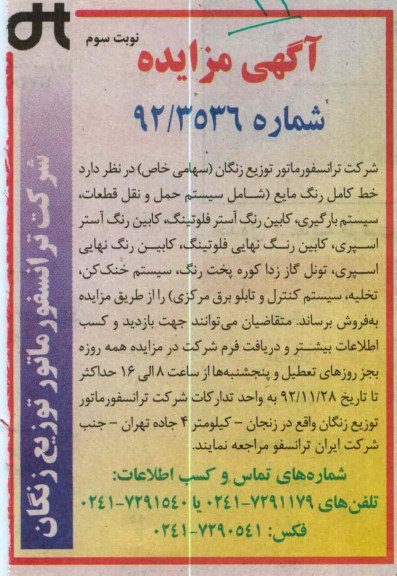 نوبت سوم
آگهی مزایده
شماره ۹۲/۳۵۳۶
شرکت ترانسفورماتور توزیع زنگان (سهامی خاص) در نظر دارد
خط کامل رنگ مایع (شامل سیستم حمل و نقل قطعات،
سیستم بارگیری، کابین رنگ آستر فلوتینگ، کابین رنگ آستر
اسپری، کابین رنگ نهایی فلوتینگ، کابین رنگ نهایی
اسپری، تونل گاز زدا کوره پخت رنگ، سیستم خنک‌کن،
تخلیه، سیستم کنترل و تابلو برق مرکزی) را از طریق مزایده
به‌فروش برساند. متقاضیان می‌توانند جهت بازدید و کسب
اطلاعات بیشتر و دریافت فرم شرکت در مزایده همه روزه
بجز روزهای تعطیل و پنجشنبه‌ها از ساعت ۸ الی ۱۶ حداکثر
تا تاریخ ۹۲/۱۱/۲۸ به واحد تدارکات شرکت ترانسفورماتور
توزیع زنگان واقع در زنجان - کیلومتر ۴ جاده تهران - جنب
شرکت ایران ترانسفو مراجعه نمایند.
شماره‌های تماس و کسب اطلاعات:
تلفن‌های ۷۲۹۱۱۷۹-۰۲۴۱ یا ۷۲۹۱۵۴۰-۰۲۴۱
فکس: ۷۲۹۰۵۴۱-۰۲۴۱
شرکت ترانسفورماتور توزیع زنگان